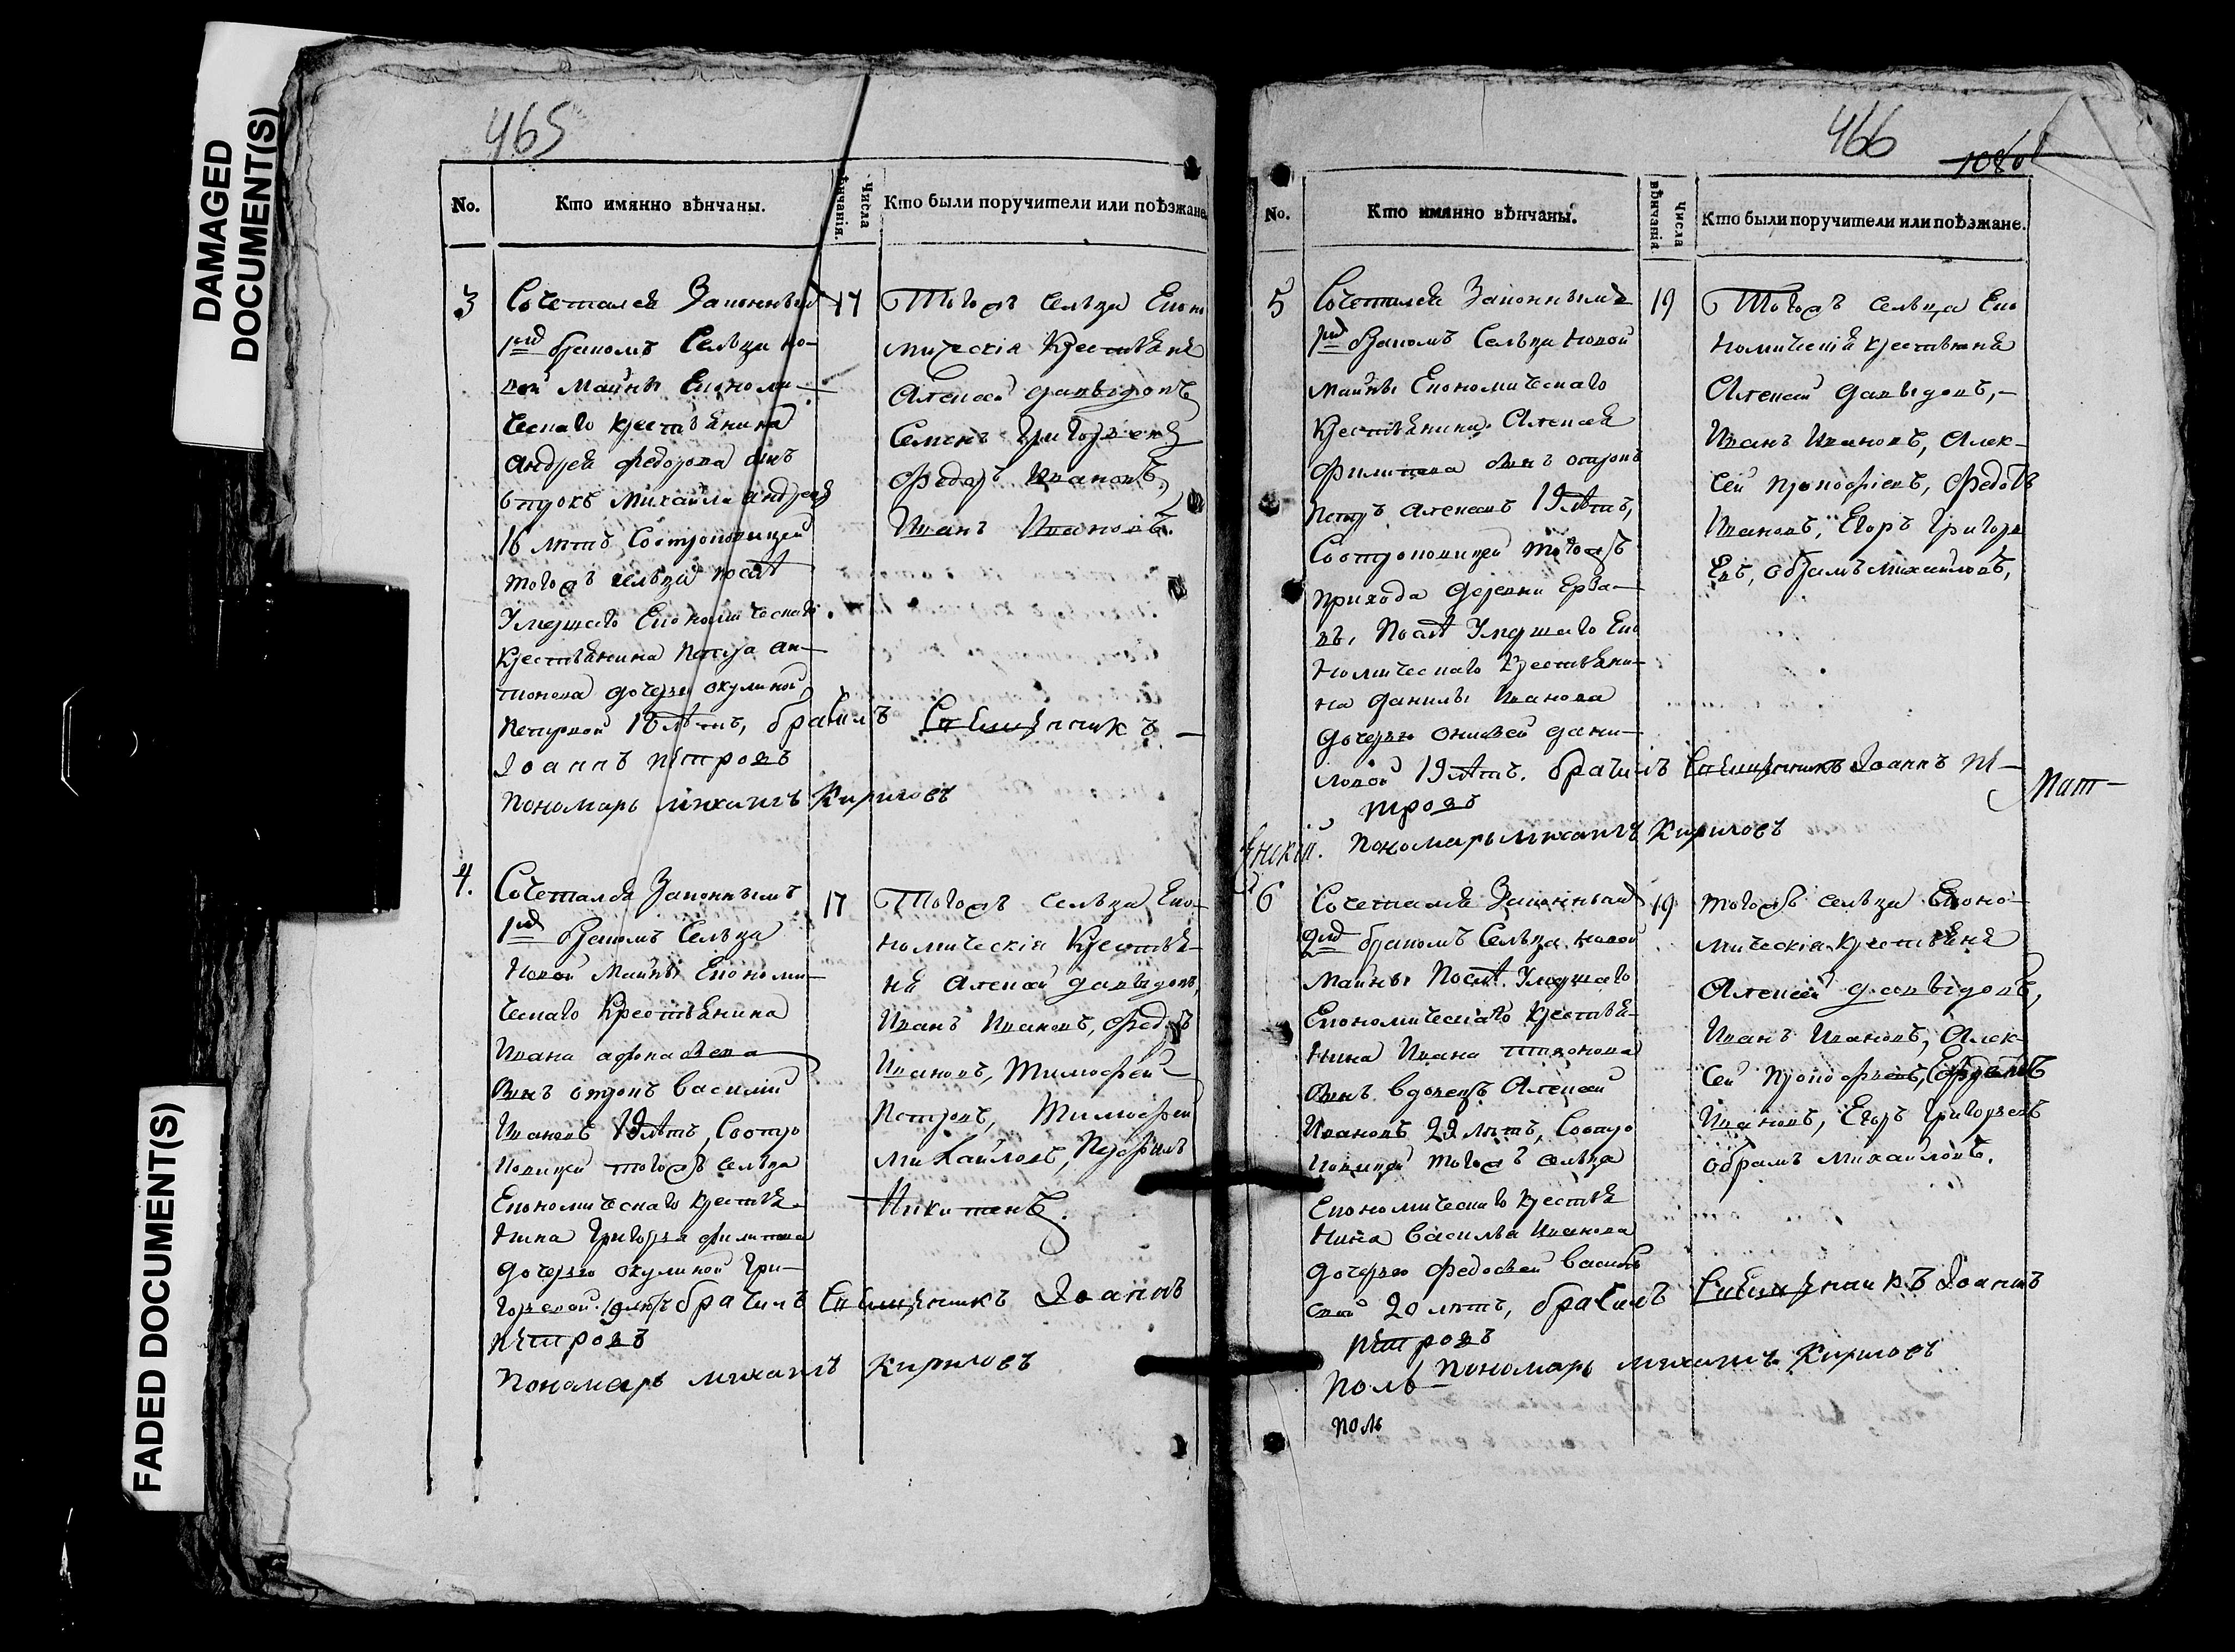 DAMAGED
DOCUMENT(S)
FADED DOCUMENT(S)
465
No.
Кто имянно вѣнчаны.
Числа
вѣнчанія.
Кто были поручители или поѣзжане.
3
Сочетался Законнымъ
1мъ бракомъ Сельца Но-
вой Майны Економи-
ческаго крестьянина
Андрея Федорова сынъ
отрокъ Михайла Андреевъ
16 лѣтъ, Соотроковицей
тогожъ сельца послѣ
Умершаго Економическаго
Крестьянина Петра Ан-
тонова дочерью Окулиной
Петровой 18 лѣтъ, брачилъ Священникъ
Іоаннъ Петровъ
Пономарь Михаилъ Кириловъ
17
Тогожъ сельца Еконо
мическія Крестьяня
Алексей Давыдовъ
Семенъ Григорьевъ
Федоръ Ивановъ,
Иванъ Ивановъ.
4.
Сочетался Законнымъ
1мъ бракомъ Сельца
Новой Майны Економи-
ческаго Крестьянина
Ивана Афонасьева
сынъ отрокъ Василій
Ивановъ 19 лѣтъ, Соотро
ковицей тогожъ сельца
Економическаго крестья-
нина Григорья Филипова
дочерью Окулиной Гри-
горьевой 19 лѣтъ брачилъ Священникъ Іоаннъ
Петровъ
Пономарь Михаилъ Кириловъ
17
Тогожъ сельца Еко-
номическія Крестья-
ня Алексей Давыдовъ,
Иванъ Ивановъ, Федоръ
Ивановъ, Тимофей
Петровъ, Тимофей
Михайловъ,
Никитенъ.
466
1080
No.
Кто имянно вѣнчаны.
Числа
вѣнчанія.
Кто были поручители или поѣзжане.
5
Сочетался Законнымъ
1мъ бракомъ Сельца Новой
Майны Економическаго
Крестьянина Алексея
Филипова сынъ отрокъ
Петръ Алексеевъ 19 лѣтъ,
Соотроковицей тогожъ
прихода деревни
послѣ Умершаго Еко
номическаго Крестьяни-
на Данилы Иванова
дочерью Данил-
ловой 19 лѣтъ. брачилъ Священникъ Іоаннъ Пе-
тровъ
Пономарь Михаилъ Кириловъ
19
Тогожъ сельца Еко
номическія крестьяня
Алексей Давыдовъ,
Иванъ Ивановъ, Алек-
сей Прокофіевъ, Федотъ
Ивановъ, Егоръ Григорь
евъ, Обрамъ Михайловъ,
6
Сочетался Законнымъ
2мъ бракомъ Сельца Новой
Майны Послѣ Умершаго
Економическаго Крестья-
нина Ивана
сынъ вдовецъ Алексей
Ивановъ 22 лѣтъ, Соотро
ковицей тогожъ сельца
Економическаго Крестья
нина Василья Иванова
дочерью Федосьей Василь
евой 20 лѣтъ, брачилъ Священникъ Іоаннъ
Петровъ
Пономарь Михаилъ Кириловъ
19
тогожъ сельца Еконо-
мическія крестьяня
Алексей Давыдовъ,
Иванъ Ивановъ, Алек-
сей Прокофьевъ, Федотъ
Ивановъ, Егоръ Григорьевъ
Обрамъ Михайловъ.
Поль
поль